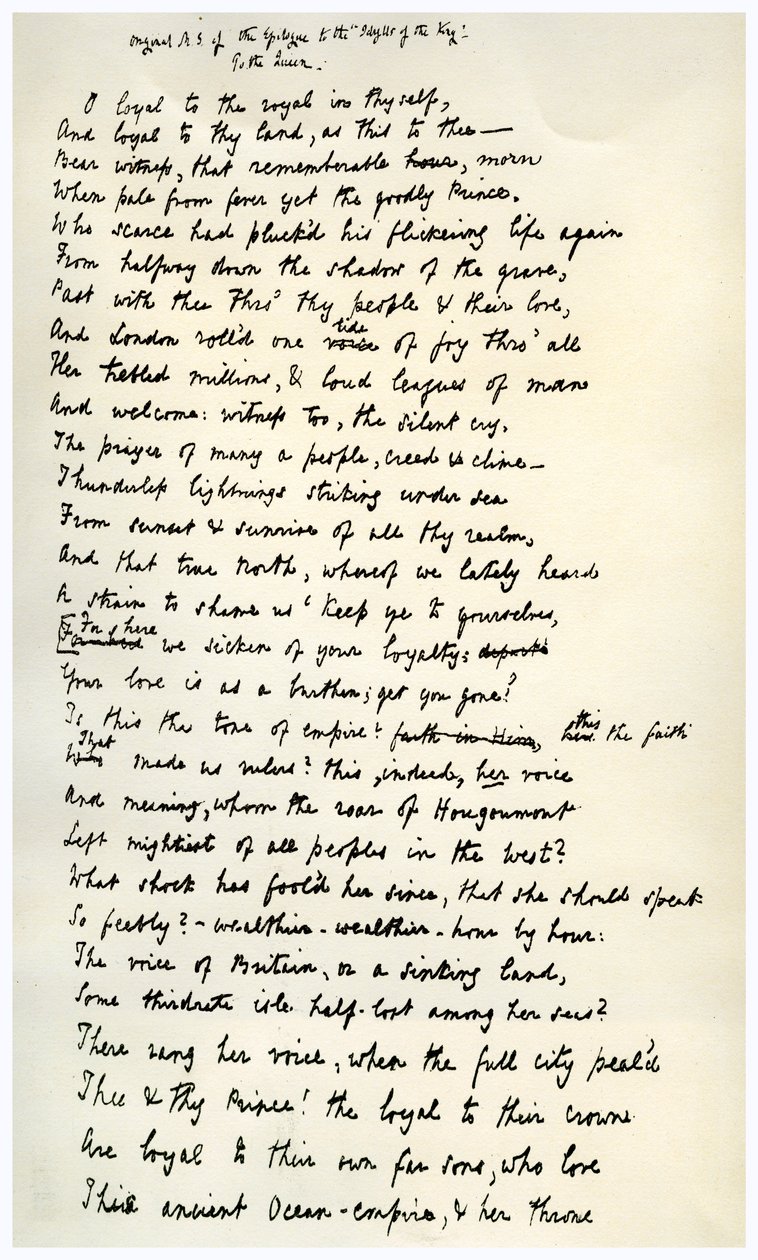 Original M.S. of the Epilogue to the "Idylls of the King".
To the Queen.
O loyal to the royal in thyself,
And loyal to thy land, as this to thee —
Bear witness, that rememberable hour, morn
When pale from fever yet the goodly Prince.
Who scarce had pluck'd his flickering life again
From halfway down the shadow of the grave,
Past with thee thro' thy people & their love,
tide
And London roll'd one voice of joy thro' all
Her trebled millions, & loud leagues of man
And welcome: witness too, the silent cry,
The prayer of many a people, creed & clime —
Thunderless lightnings striking under sea
From sunset & sunrise of all thy realm,
And that true North, whereof we lately heard
A strain to shame us 'keep ye to yourselves,
For here
we sicken of your loyalty:
Your love is as a burthen; get you gone!'
this
Is this the tone of empire? faith in Him, the faith
That
Who made us rulers? this, indeed, her voice
And meaning, whom the roar of Hougoumont
Left mightiest of all peoples in the west?
What shock has fool'd her since, that she should speak
So feebly? - wealthier - wealthier - hour by hour:
The voice of Britain, or a sinking land,
Some thirdrate isle half-lost among her seas?
There rang her voice, when the full city peal'd
Thee & thy Prince! the loyal to their crown
Are loyal to their own far sons, who love
Their ancient Ocean-empire, & her throne